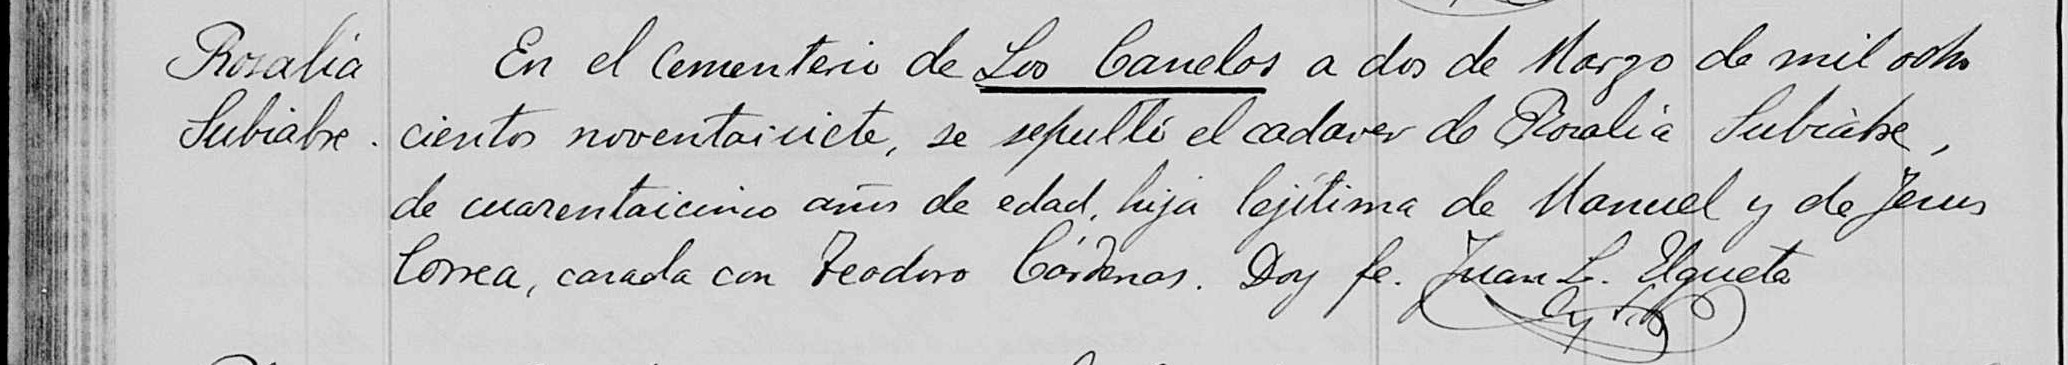 Rosalia
Subiabre.
En el Cementerio de Los Canelos a dos de Marzo de mil ocho
cientos noventaisiete, se sepultó el cadaver de Rosalia Subiabre,
de cuarentaicinco años de edad, hija lejítima de Manuel y de Jesus
Correa, casada con Teodoro Cárdenas. Doy fe. Juan L. Elgueta